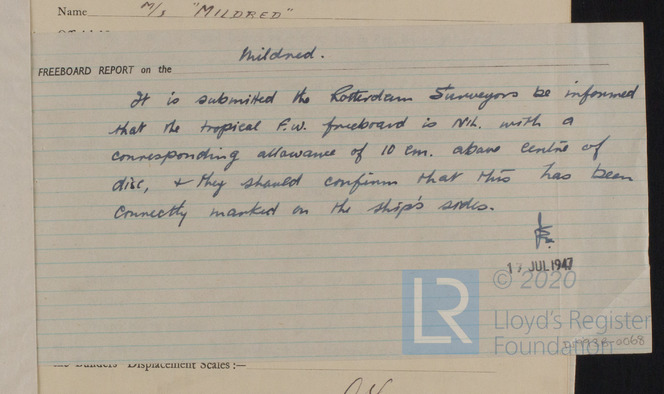 Name M/S "MILDRED"
Mildred.
FREEBOARD REPORT on the
It is submitted the Rotterdam Surveyors be informed
that the tropical F.W. freeboard is Nil. with a
corresponding allowance of 10 cm. above centre of
disc, & they should confirm that this has been
correctly marked on the ship's sides.
17 JUL 1947
© 2020
LR
Lloyd's Register
Foundation
Displacement Scales:—